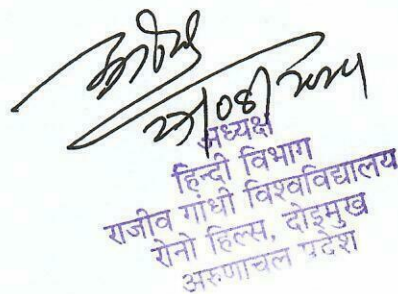 अध्यक्ष
हिन्दी विभाग
राजीव गांधी विश्वविद्यालय
रोनो हिल्स, दोइमुख
अरुणाचल प्रदेश